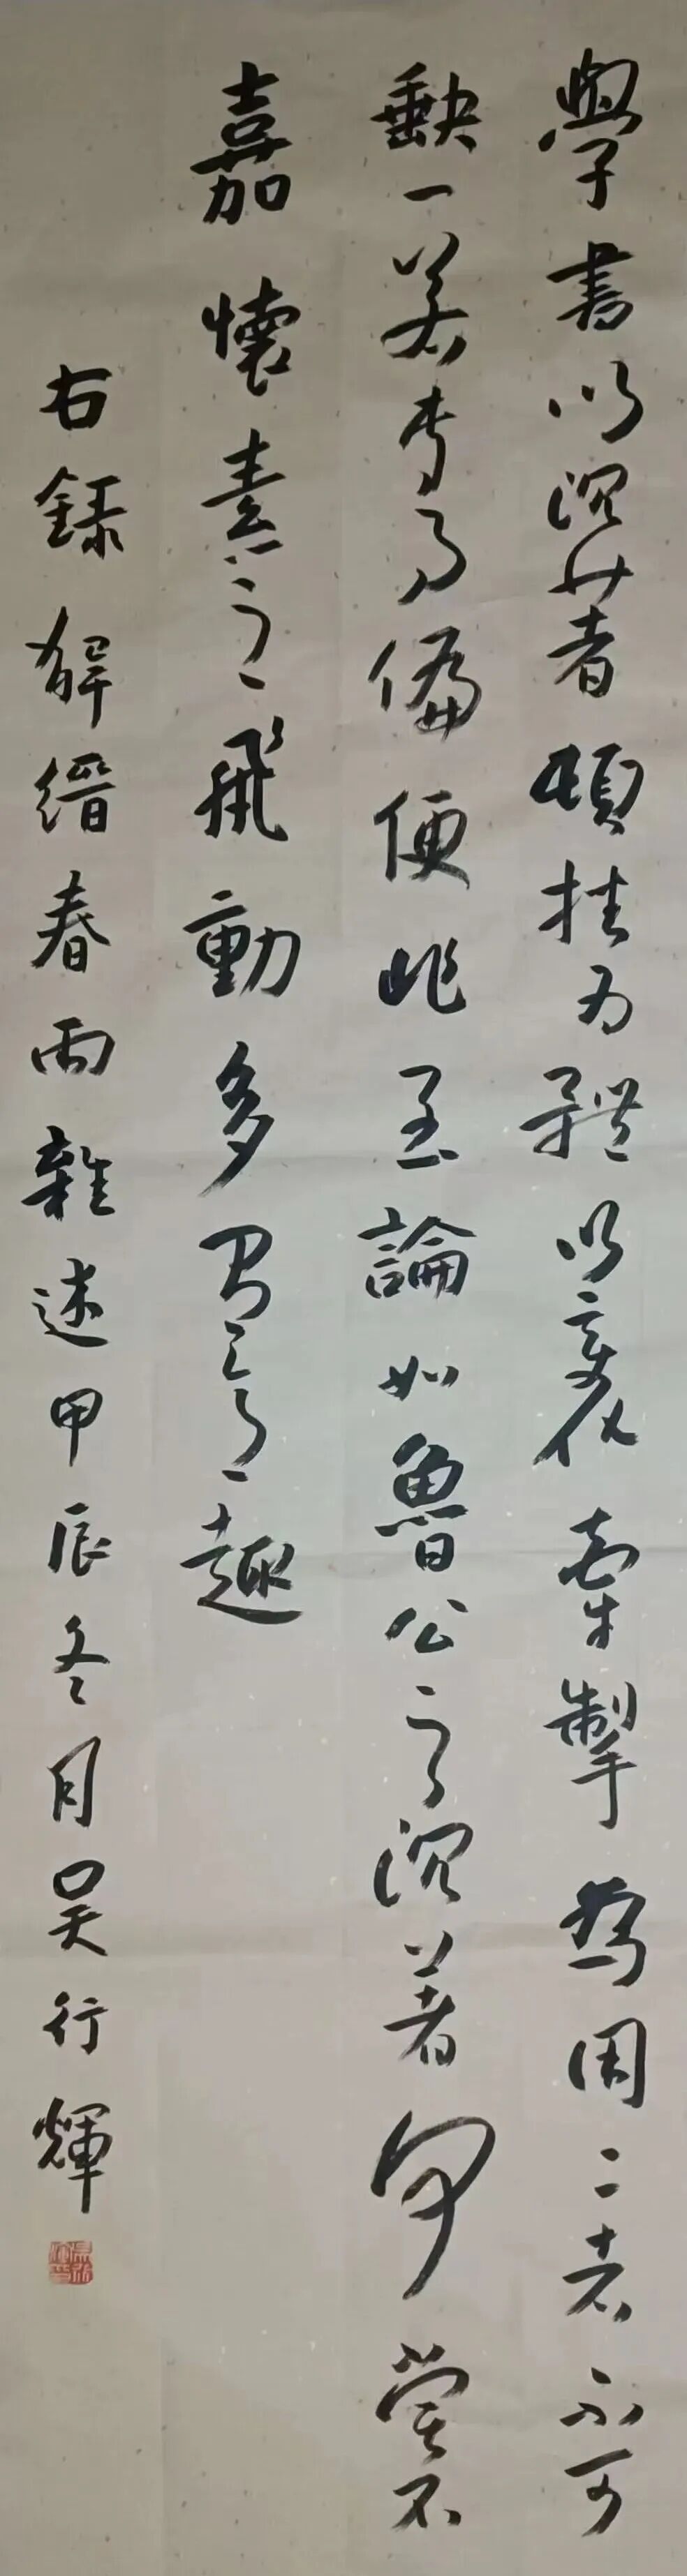 學書以沉著頓挫為體以變化牽掣為用二者不可
缺一若專事偏便非至論如魯公之沉著何嘗不
嘉懷素之飛動多有意趣
右録解縉春雨雜述甲辰冬月吴行輝